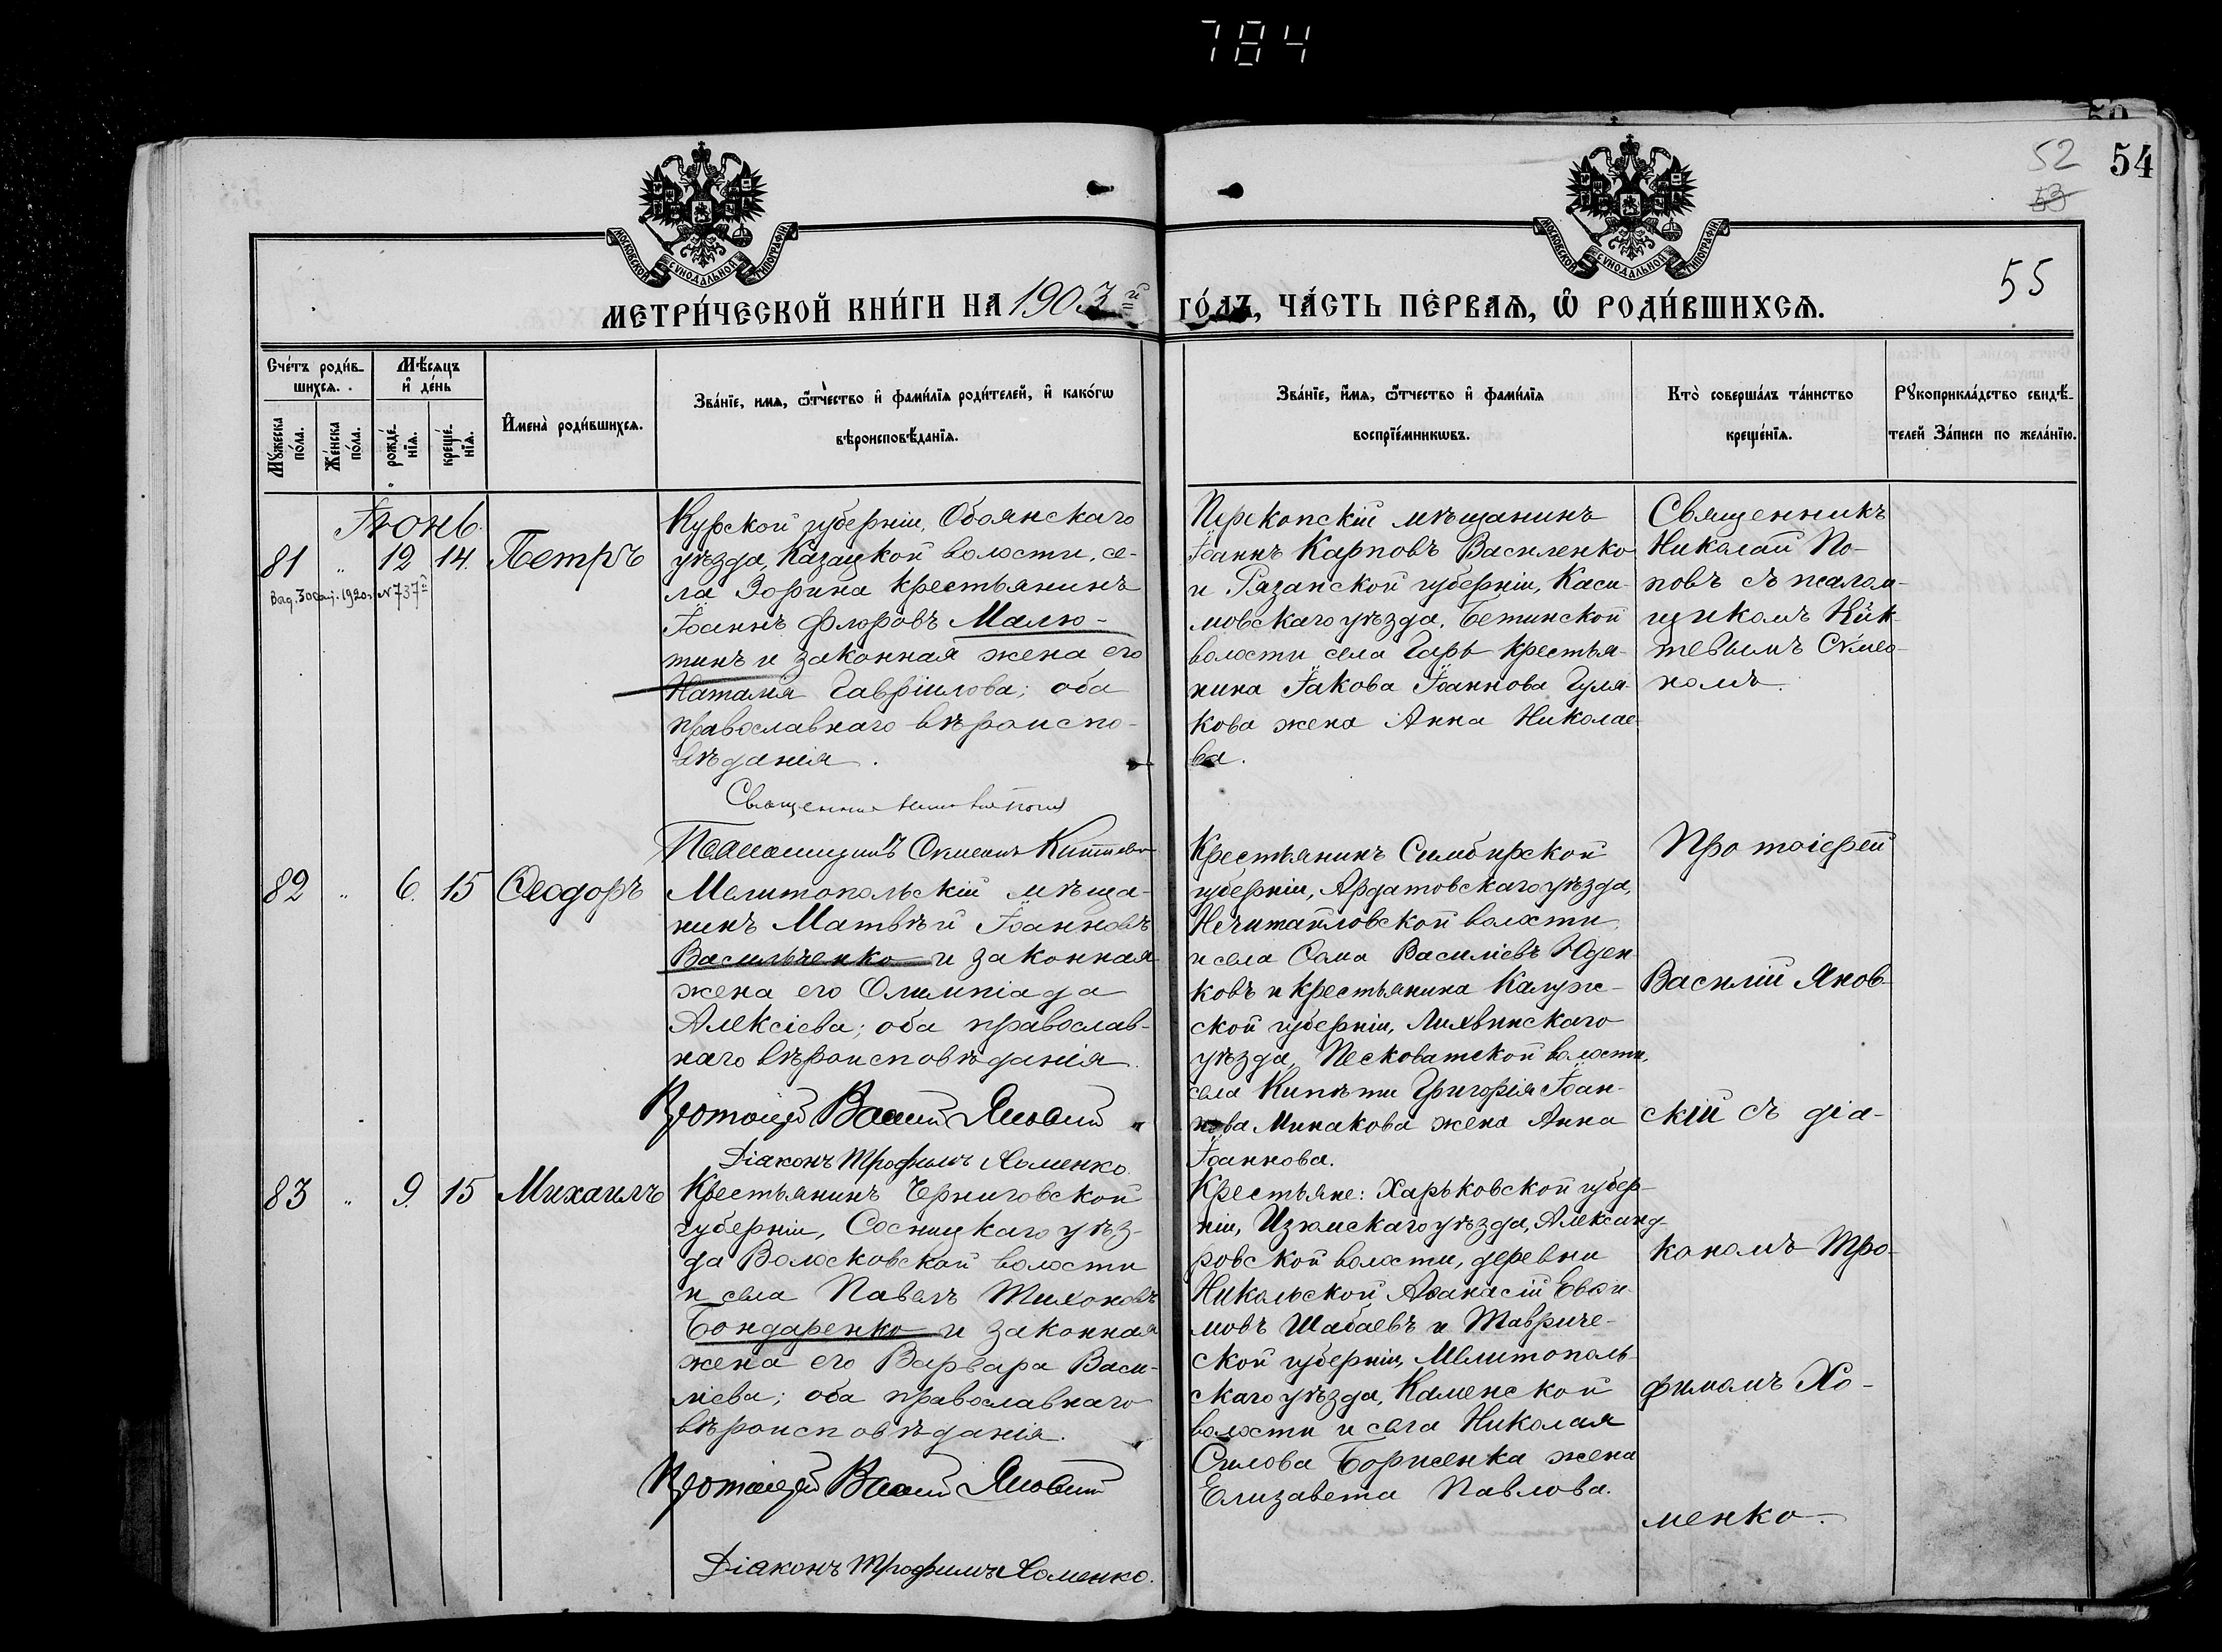 784
52
54
53
55
МОСКОВСКОЙ СУНОДАЛЬНОЙ ТИПОГРАФІИ
МОСКОВСКОЙ СУНОДАЛЬНОЙ ТИПОГРАФІИ
МЕТРИ́ЧЕСКОЙ КНИ́ГИ НА 1903й ГО́ДЪ, ЧА́СТЬ ПЕ́РВАѦ, Ѽ РОДИ́ВШИХСѦ.
Сче́тъ роди́в-
шихсѧ.
Мѣ́сѧцъ
и҆ де́нь
Мꙋ́жеска
по́ла.
Же́нска
по́ла.
рожде́-
нїѧ.
креще́-
нїѧ.
И҆мена̀ роди́вшихсѧ.
Зва́нїе, и҆мѧ, ѻ҆́тчество и҆ фами́лїѧ роди́телей, и҆ како́гѡ
вѣроисповѣ́данїѧ.
Зва́нїе, и҆́мѧ, ѻ҆́тчество и҆ фами́лїѧ
воспрїе́мникѡвъ.
Кто̀ соверша́лъ та́инство
креще́нїѧ.
Рꙋкоприкла́дство свидѣ́-
телей За́писи по жела́нїю.
Іюнь.
81 " 12 14. Петръ
№737
Курской губерніи, Обоянскаго
уѣзда, Казацкой волости, се-
ла Зорина крестьянинъ
Іоаннъ Флоровъ Малю-
тинъ и законная жена его
Наталія Гавріилова; оба
православнаго вѣроиспо-
вѣданія.
Священникъ
Псаломщикъ
Перекопскій мѣщанинъ
Іоаннъ Карповъ Василенко
и Рязанской губерніи, Каси-
мовскаго уѣзда, Бетинской
волости села Гарь крестья-
нина Іакова Іоаннова Гуля-
кова жена Анна Николае-
ва.
Священникъ
Николай По-
повъ съ псалом-
щикомъ
82 " 6. 15 Ѳеодоръ
Мелитопольскій мѣща-
нинъ Матвѣй Іоанновъ
Васильченко и законная
жена его Олимпіада
Алексіева; оба православ-
наго вѣроисповѣданія.
Протоіерей Василій Яновскій
Діаконъ Трофимъ Хоменко.
Крестьянинъ Симбирской
губерніи, Ардатовскаго уѣзда,
волости
и села Василіевъ Юден-
ковъ и крестьянина Калуж-
ской губерніи, Лихвинскаго
уѣзда, Песковатской волости,
села Кипѣти Григорія Іоан-
нова Минакова жена Анна
Іоаннова.
Протоіерей
Василій Янов-
скій съ діа-
кономъ Тро-
фимомъ Хо-
менко.
83 " 9. 15 Михаилъ
Крестьянинъ Черниговской
губерніи, Сосницкаго уѣз-
да Волосковской волости
и села Павелъ Тихоновъ
Бондаренко и законная
жена его Варвара Васи-
ліева; оба православнаго
вѣроисповѣданія.
Протоіерей Василій Яновскій
Діаконъ Трофимъ Хоменко.
Крестьяне: Харьковской губер-
ніи, Изюмскаго уѣзда, Александ-
ровской волости, деревни
Никольской Аѳанасій Евѳи-
мовъ Шабаевъ и Тавриче-
ской губерніи, Мелитополь-
скаго уѣзда, Каменской
волости и села Николая
Силова Борисенка жена
Елизавета Павлова.